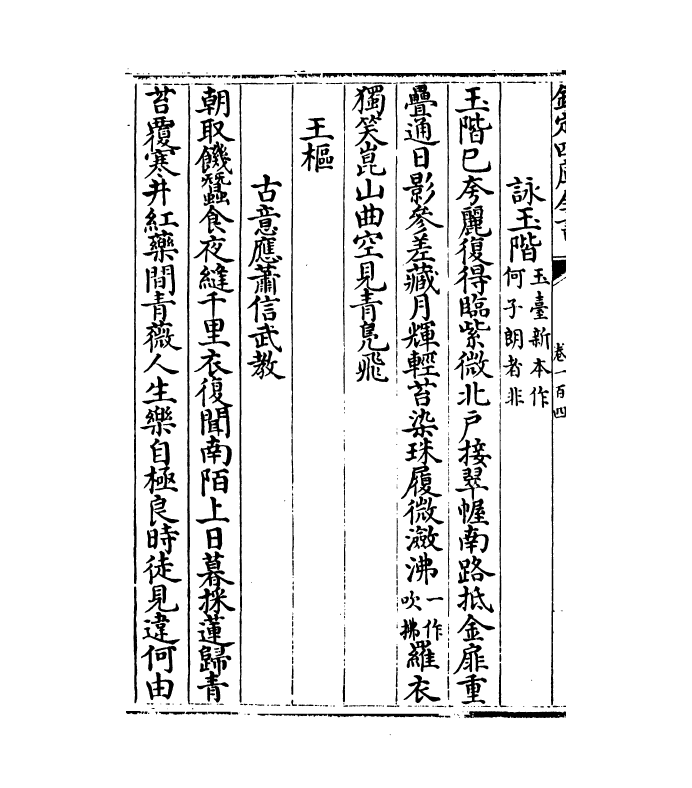 欽定四庫全書
卷一百四
詠玉階玉臺新本作何子朗者非
玉階已夸麗復得臨紫微北戶接翠幄南路抵金扉重
疊通日影參差藏月輝輕苔染珠履微瀲沸一作吹拂羅衣
獨笑崑山曲空見青鳧飛
王樞
古意應蕭信武教
朝取饑蠶食夜縫千里衣復聞南陌上日暮採蓮歸青
苔覆寒井紅藥間青薇人生樂自極良時徒見違何由